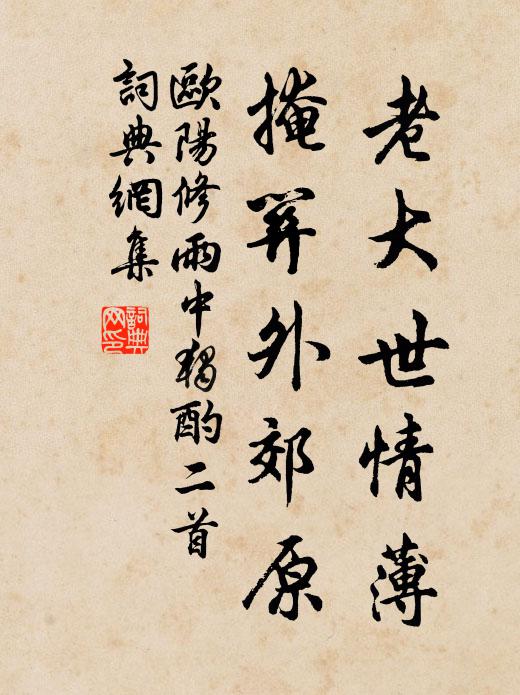 老大世情薄
掩關外郊原
歐陽修雨中獨酌二首
詞典網集
詞典
网印